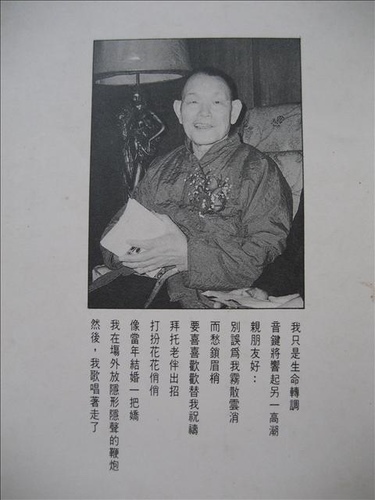 我只是生命轉調
音鍵將響起另一高潮
親朋友好：
別誤為我霧散雲消
而愁鎖眉梢
要喜喜歡歡替我祝禱
拜托老伴出招
打扮花花俏俏
像當年結婚一把嬌
我在場外放隱形隱聲的鞭炮
然後，我歌唱著走了